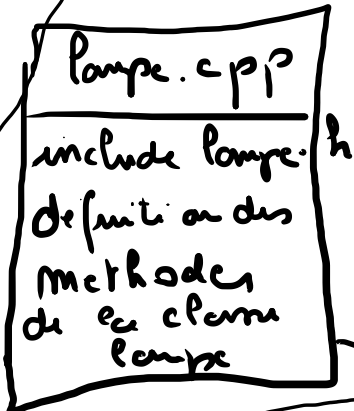 lampe.cpp
include lampe.h
definition des
methodes
de la classe
lampe